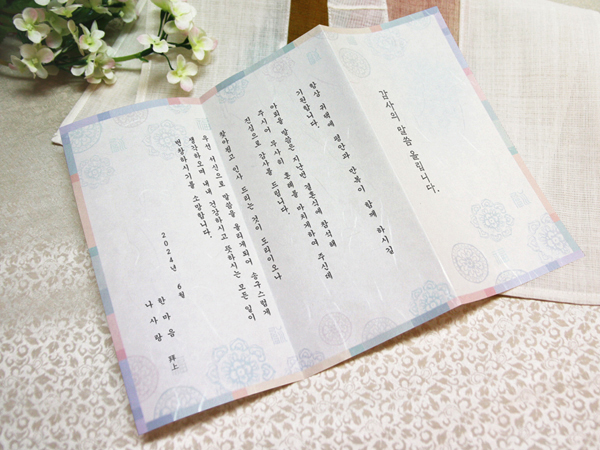 감사의 말씀 올립니다.
항상 귀댁에 평안과 만복이 함께 하시길
기원합니다.
아뢰올 말씀은 지난번 결혼식에 참석해
주시어 무사히 혼례를 마치게하여 주신데
진심으로 감사를 드립니다.
찾아뵙고 인사 드리는 것이 도리이오나
우선 서신으로 말씀을 올리게되어 송구스럽게
생각하오며 내내 건강하시고 뜻하시는 모든 일이
번창하시기를 소망합니다.
2024년 6월
한마음
나사랑 拜上